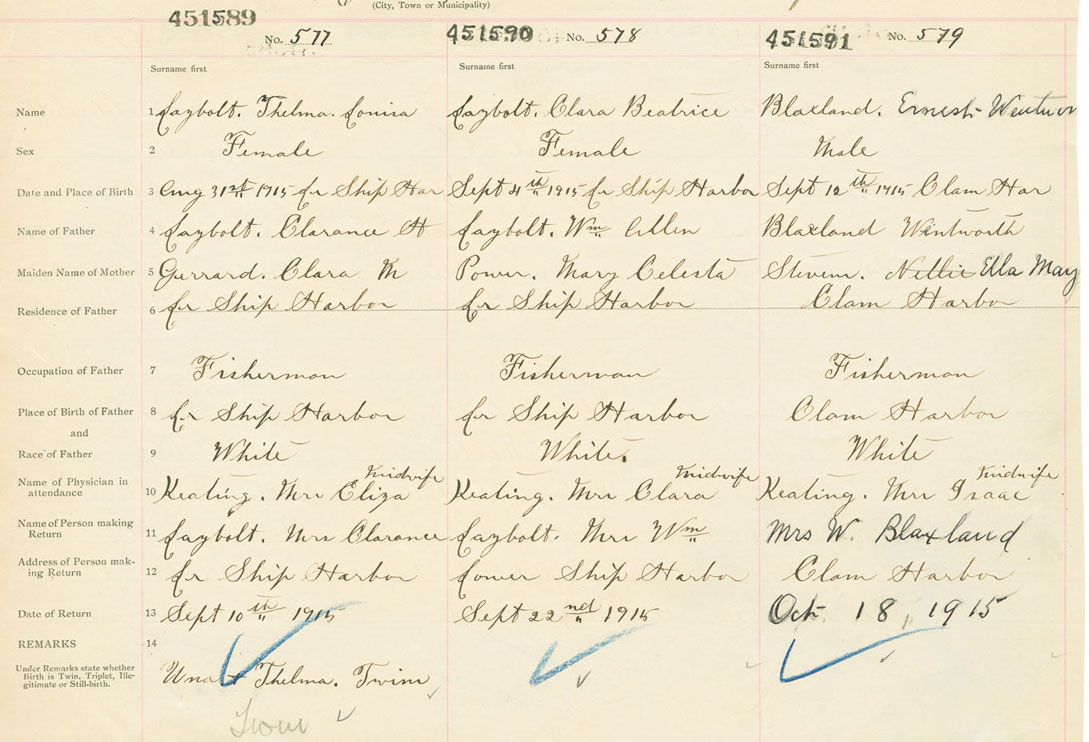 (City, Town or Municipality)
451589 No. 577 451590 No. 578 451591 No. 579
Surname first Surname first Surname first
Name 1 Laybolt. Thelma. Louisa Laybolt. Clara Beatrice Blaxland. Ernest Wentwor
Sex 2 Female Female Male
Date and Place of Birth 3 Aug 31st 1915 Lr Ship Har Sept 4th 1915 Lr Ship Harbor Sept 12th 1915 Clam Har
Name of Father 4 Laybolt. Clarance H Laybolt. Wm Allen Blaxland Wentworth
Maiden Name of Mother 5 Gerrard. Clara M Power. Mary Celesta Stevens. Nellie Ella May
Residence of Father 6 Lr Ship Harbor Lr Ship Harbor Clam Harbor
Occupation of Father 7 Fisherman Fisherman Fisherman
Place of Birth of Father 8 Lr Ship Harbor Lr Ship Harbor Clam Harbor
and
Race of Father 9 White White. White
Name of Physician in attendance 10 Keating. Mrs Eliza Midwife Keating. Mrs Clara Midwife Keating. Mrs Isaac Midwife
Name of Person making Return 11 Laybolt. Mrs Clarance Laybolt. Mrs Wm Mrs W. Blaxland
Address of Person making Return 12 Lr Ship Harbor Lower Ship Harbor Clam Harbor
Date of Return 13 Sept 10th 1915 Sept 22nd 1915 Oct 18, 1915
REMARKS 14
Under Remarks state whether Birth is Twin, Triplet, Illegitimate or Still-birth. Una + Thelma. Twins